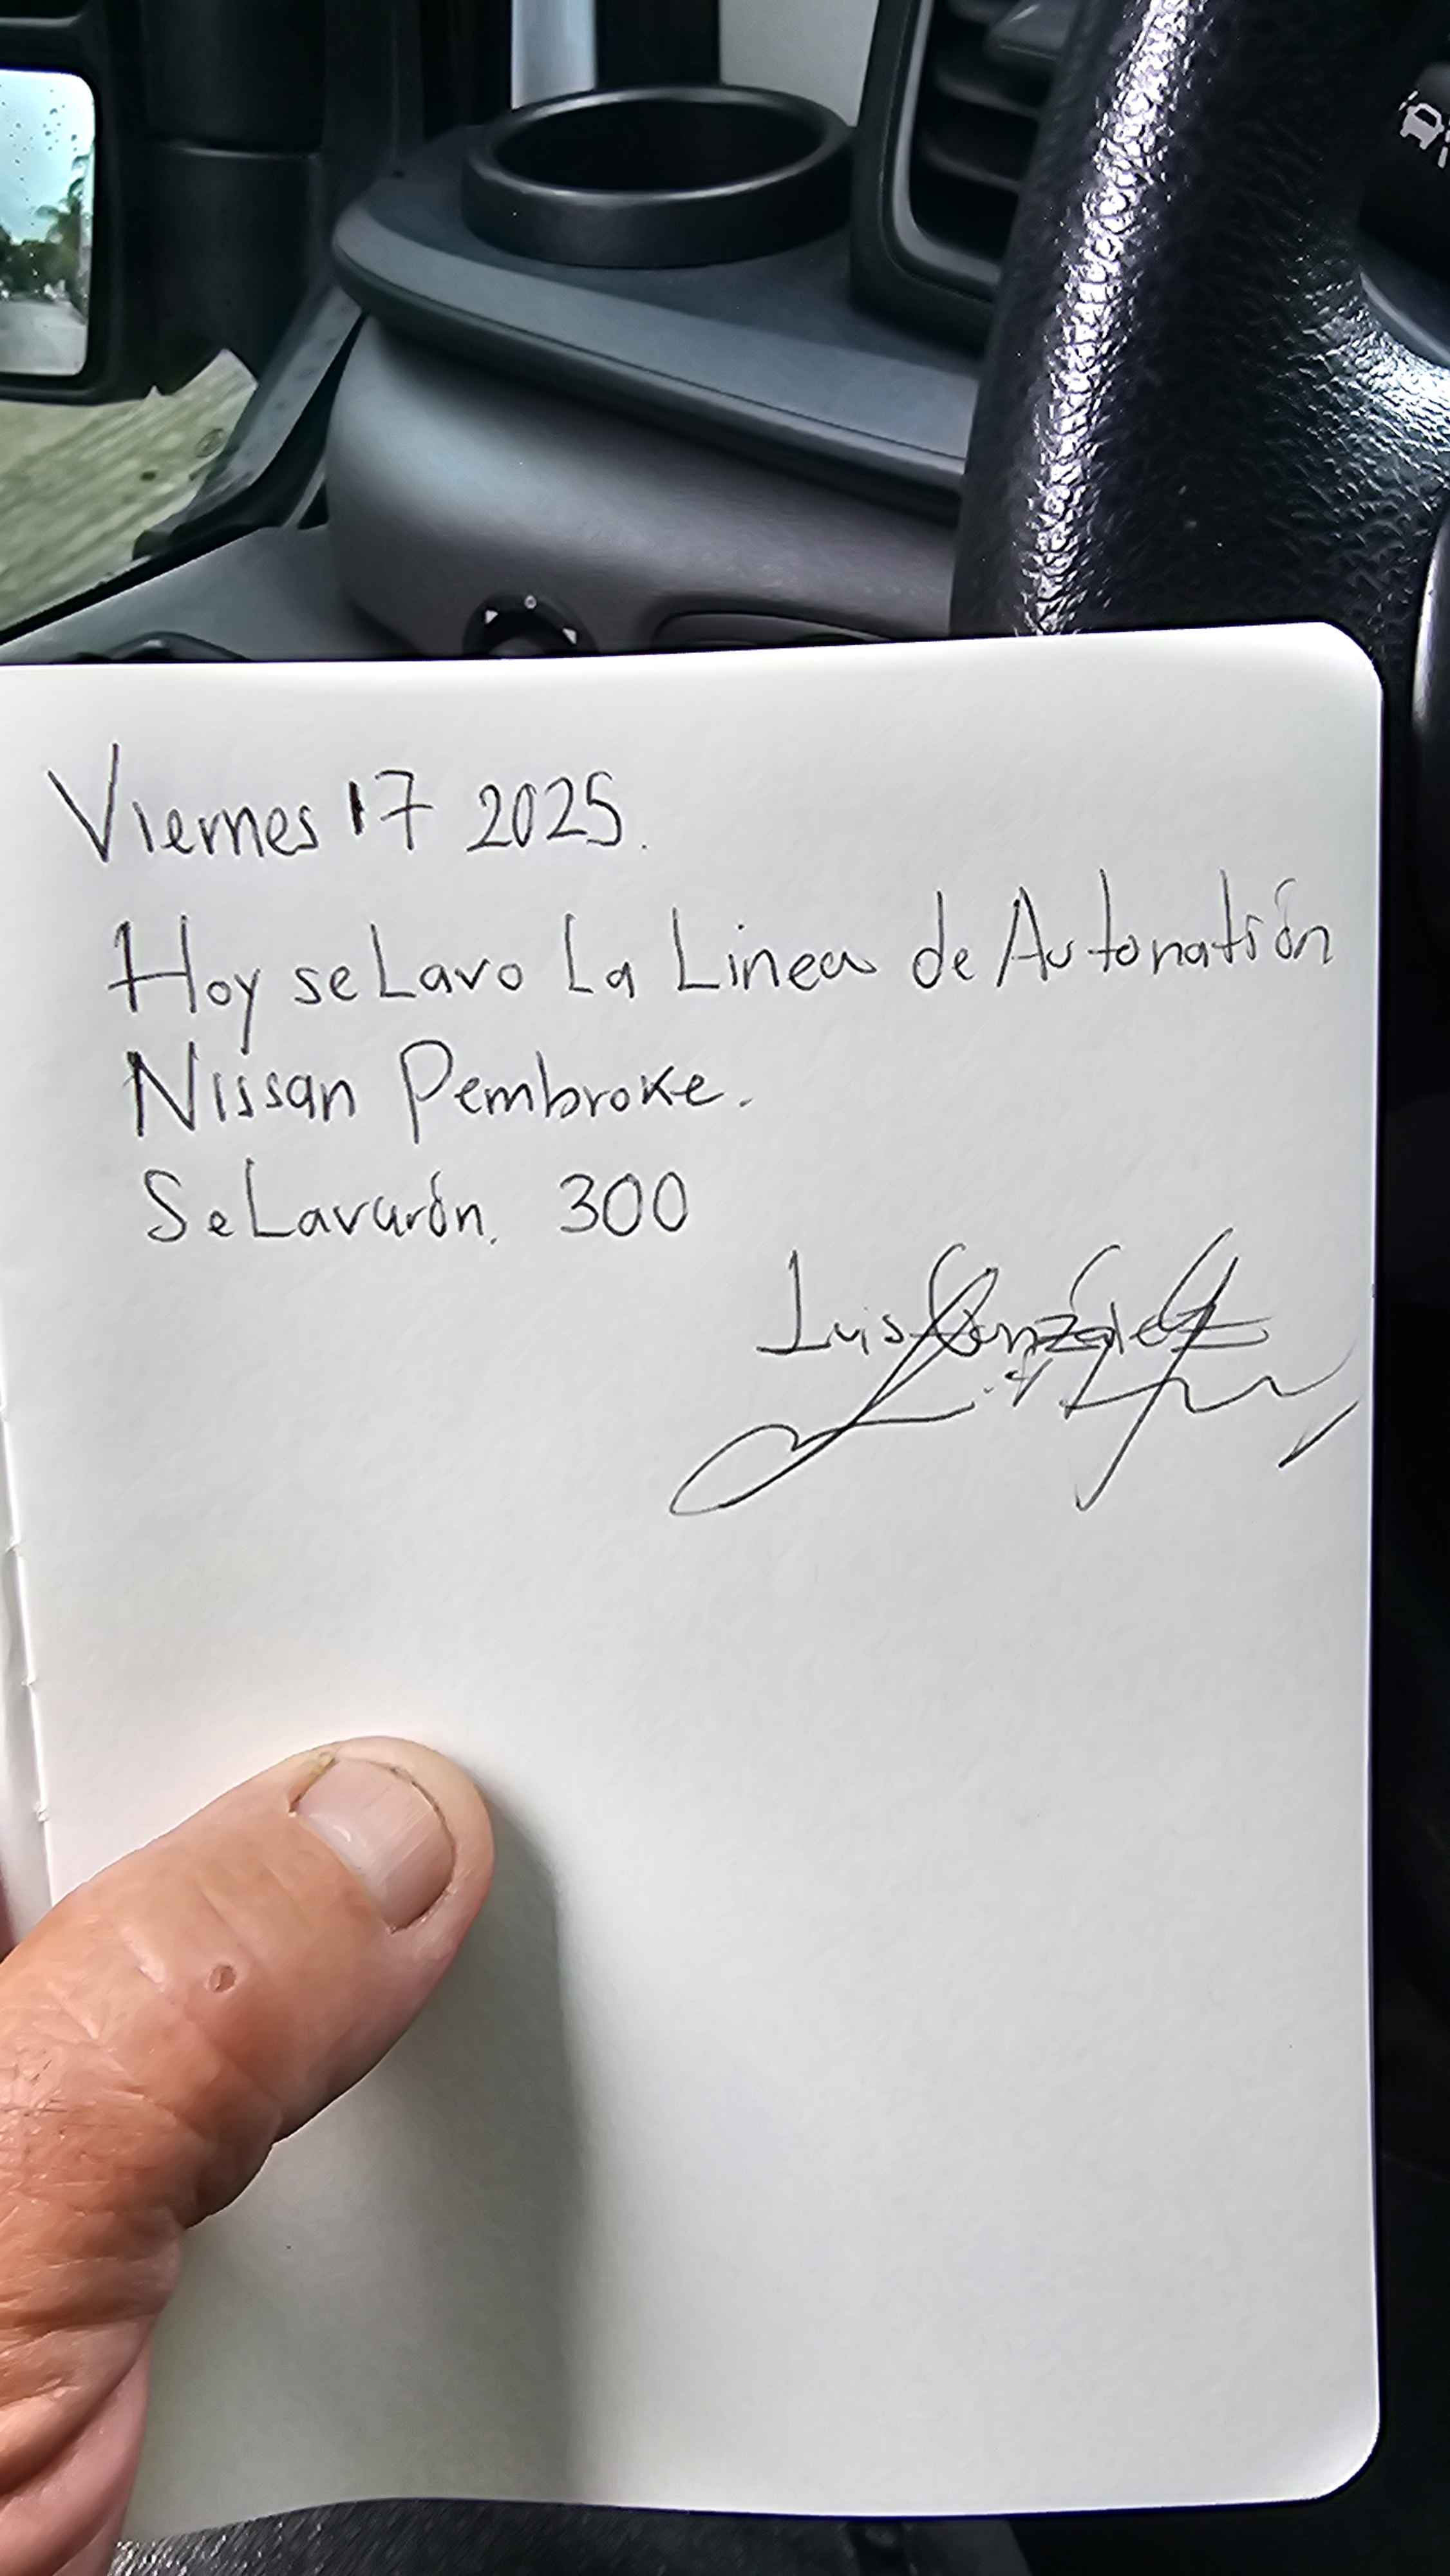 Viernes 17 2025.
Hoy se Lavo La Linea de Autonatión
Nissan Pembroke.
Se Lavarón. 300
Luis González